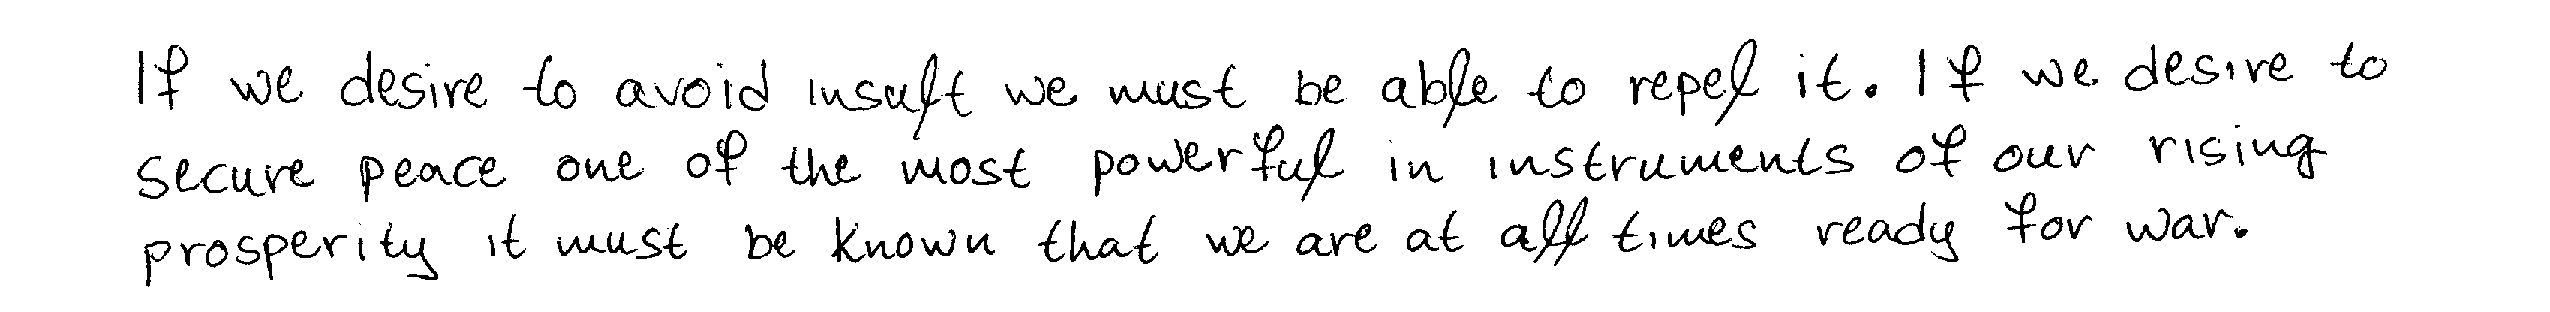 If we desire to avoid insult we must be able to repel it. If we desire to
secure peace one of the most powerful in instruments of our rising
prosperity it must be known that we are at all times ready for war.